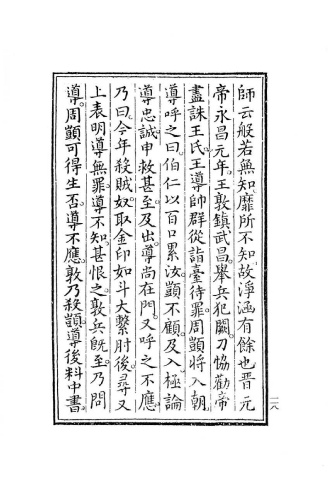 師云般若無知靡所不知故淨涵有餘也晋元
帝永昌元年王敦鎮武昌舉兵犯闕刀恊勸帝
盡誅王氏王導帥群從詣臺待罪周顗將入朝
導呼之曰伯仁以百口累汝顗不顧及入極論
導忠誠申救甚至及出導尚在門又呼之不應
乃曰今年殺賊奴取金印如斗大繫肘後尋又
上表明導無罪導不知甚恨之敦兵旣至乃問
導周顗可得生否導不應敦乃殺顗導後料中書
二八